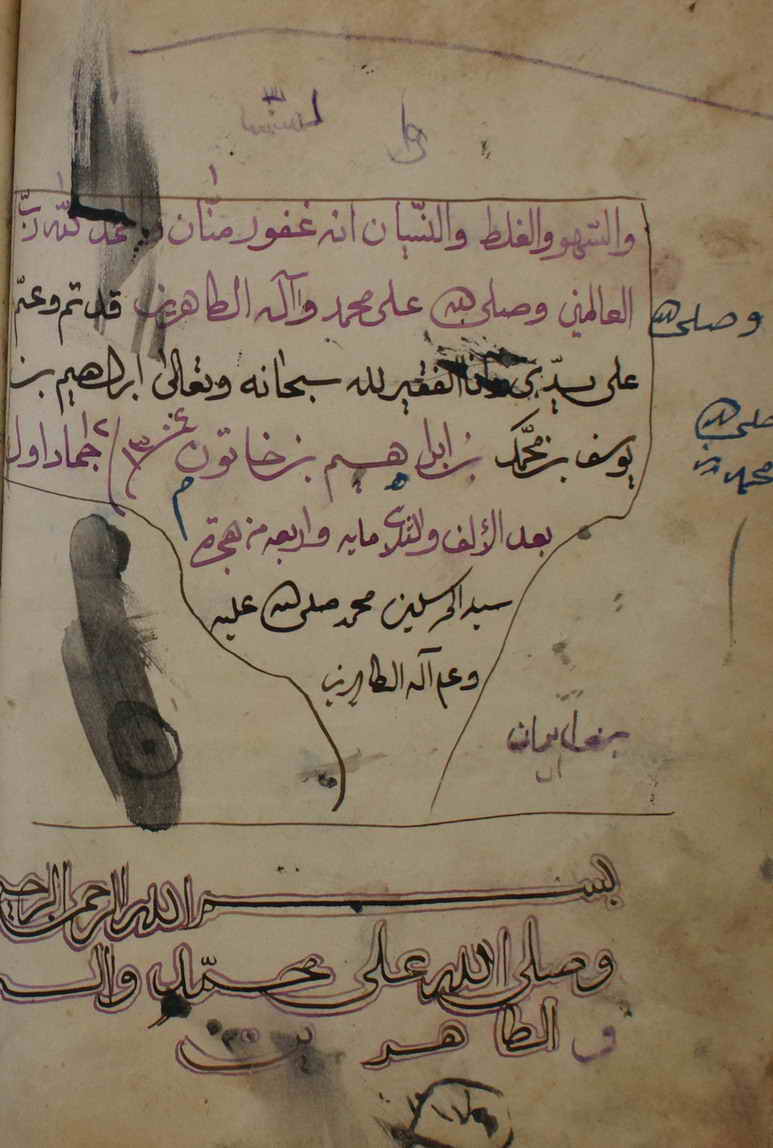 والسهو والغلط والنسيان انه غفور منّان والحمد لله ربّ
العالمين وصلى الله على محمد واآله الطاهرين قد تم وعمّ
على يدي وانا الفقير لله سبحانه وتعالى ابراهيم بن
يوسف بن محمّد بن ابراهيم بن خاتون جماد اول
بعد الألف والثلاثمايه واربعه من هجرة
سيد المرسلين محمد صلى الله عليه
وعلى آله الطاهرين
وصلى الله
صلى الله
محمد
بسم الله الرحمن الرحيم
وصلى الله على محمّد واله
الطاهرين